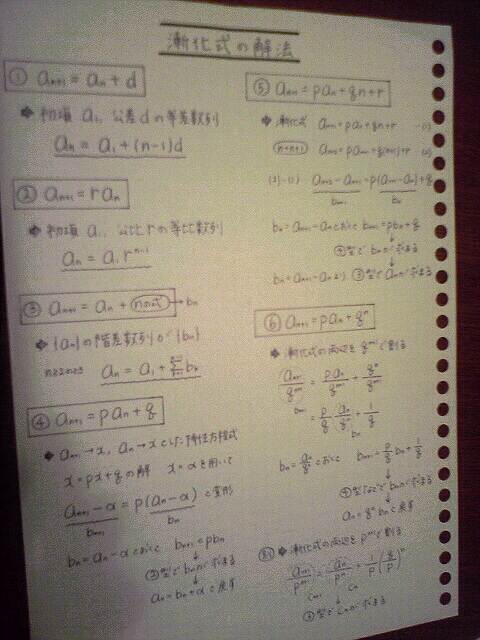 漸化式の解法
① aₙ₊₁ = aₙ + d
◆ 初項 a₁, 公差 d の等差数列
aₙ = a₁ + (n-1)d
② aₙ₊₁ = r aₙ
◆ 初項 a₁, 公比 r の等比数列
aₙ = a₁ rⁿ⁻¹
③ aₙ₊₁ = aₙ + (nの式) → bₙ
◆ {aₙ} の階差数列が {bₙ}
n≧2のとき aₙ = a₁ + Σ bₖ
④ aₙ₊₁ = p aₙ + q
◆ aₙ₊₁ → x, aₙ → x とした特性方程式
x = px + q の解 x = α を用いて
aₙ₊₁ - α = p(aₙ - α) と変形
bₙ₊₁ bₙ
bₙ = aₙ - α とおくと bₙ₊₁ = pbₙ
②型で bₙ が求まる
↓
aₙ = bₙ + α と戻す
⑤ aₙ₊₁ = paₙ + qn + r
◆ 漸化式 aₙ₊₁ = paₙ + qn + r …(1)
n→n+1 aₙ₊₂ = paₙ₊₁ + q(n+1) + r …(2)
(2)-(1) aₙ₊₂ - aₙ₊₁ = p(aₙ₊₁ - aₙ) + q
bₙ₊₁ bₙ
bₙ = aₙ₊₁ - aₙ とおくと bₙ₊₁ = pbₙ + q
↓
④型で bₙ が求まる
↓
bₙ = aₙ₊₁ - aₙ より ③型で aₙ が求まる
⑥ aₙ₊₁ = paₙ + qⁿ
◆ 漸化式の両辺を qⁿ⁺¹ で割る
aₙ₊₁/qⁿ⁺¹ = paₙ/qⁿ⁺¹ + qⁿ/qⁿ⁺¹
= p/q · aₙ/qⁿ + 1/q
bₙ₊₁ bₙ
bₙ = aₙ/qⁿ とおくと bₙ₊₁ = p/q bₙ + 1/q
↓
④型 bₙ が求まる
↓
aₙ = qⁿ bₙ と戻す
◆ 漸化式の両辺を pⁿ⁺¹ で割る
aₙ₊₁/pⁿ⁺¹ = aₙ/pⁿ + 1/p (q/p)ⁿ
cₙ₊₁ cₙ
↓
③型で cₙ が求まる